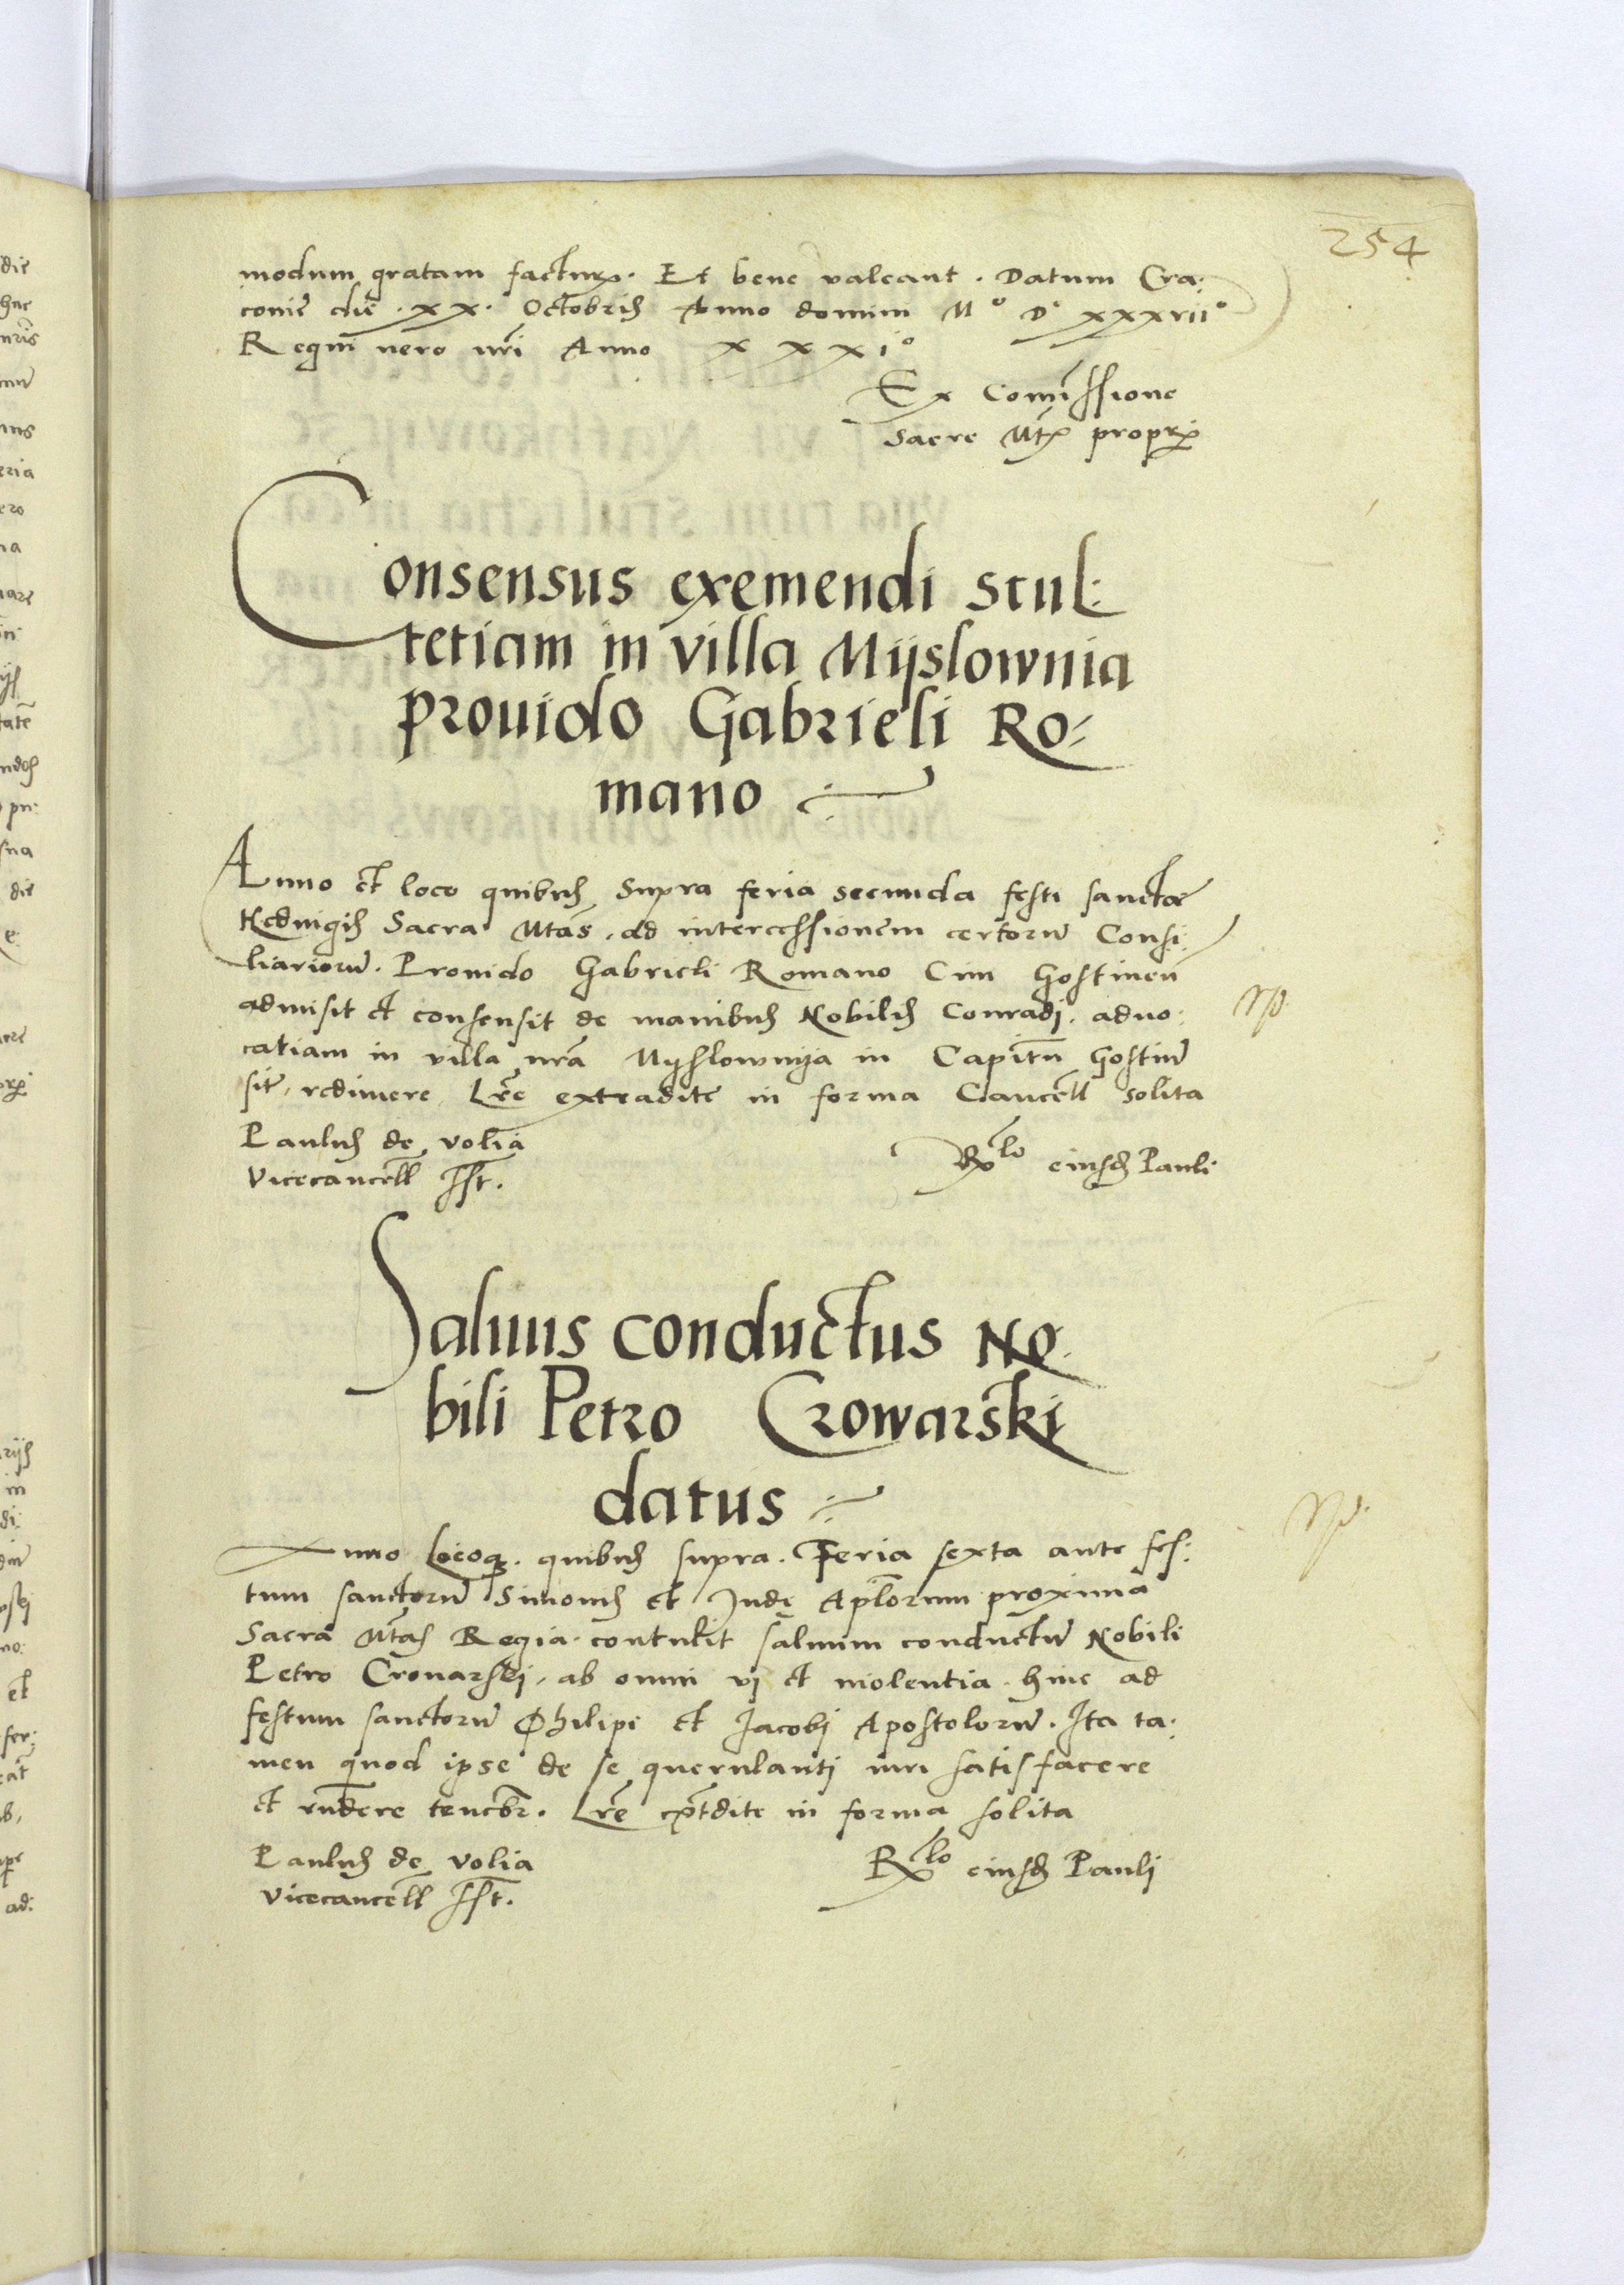 254
modum gratam factur. Et bene valeant. Datum Cra:
conie die. xx. Octobris Anno domini Mº Dº xxxviiº
Regni vero nri Anno xxxiº
Ex Comissione
Sacre Mtis propr
Consensus exemendi scul:
tetiam in villa Mijslownia
prouido Gabrieli Ro:
mano
Anno et loco quibus supra feria secunda festi sanctæ
Hedwigis Sacra Mtas. ad intercessionem certoru Consi:
liarioru. Prouido Gabrieli Romano Civi Gostinen
admisit et consensit de manibus Nobilis Conradi. aduo:
catiam in villa nra Myslownija in Capitn Gostin
site, redimere Lre extradite in forma Cancell solita
Paulus de volia
Vicecancell sst.
Rlo eiusd Pauli
Saluus conductus No:
bili Petro Crowarski
datus
Anno Locoq. quibus supra. Feria sexta ante fes:
tum sanctoru Simonis et Jude Aplorum proxima
Sacra Mtas Regia. contulit saluum conductu Nobili
Petro Crouarski, ab omni vi et violentia. hinc ad
festum sanctoru Philipi et Jacobi Apostoloru. Ita ta:
men quod ipse de se querulanti iuri satisfacere
et rndere tenebr. Lre extdite in forma solita
Paulus de volia
Vicecancell sst.
Rlo eiusd Pauli